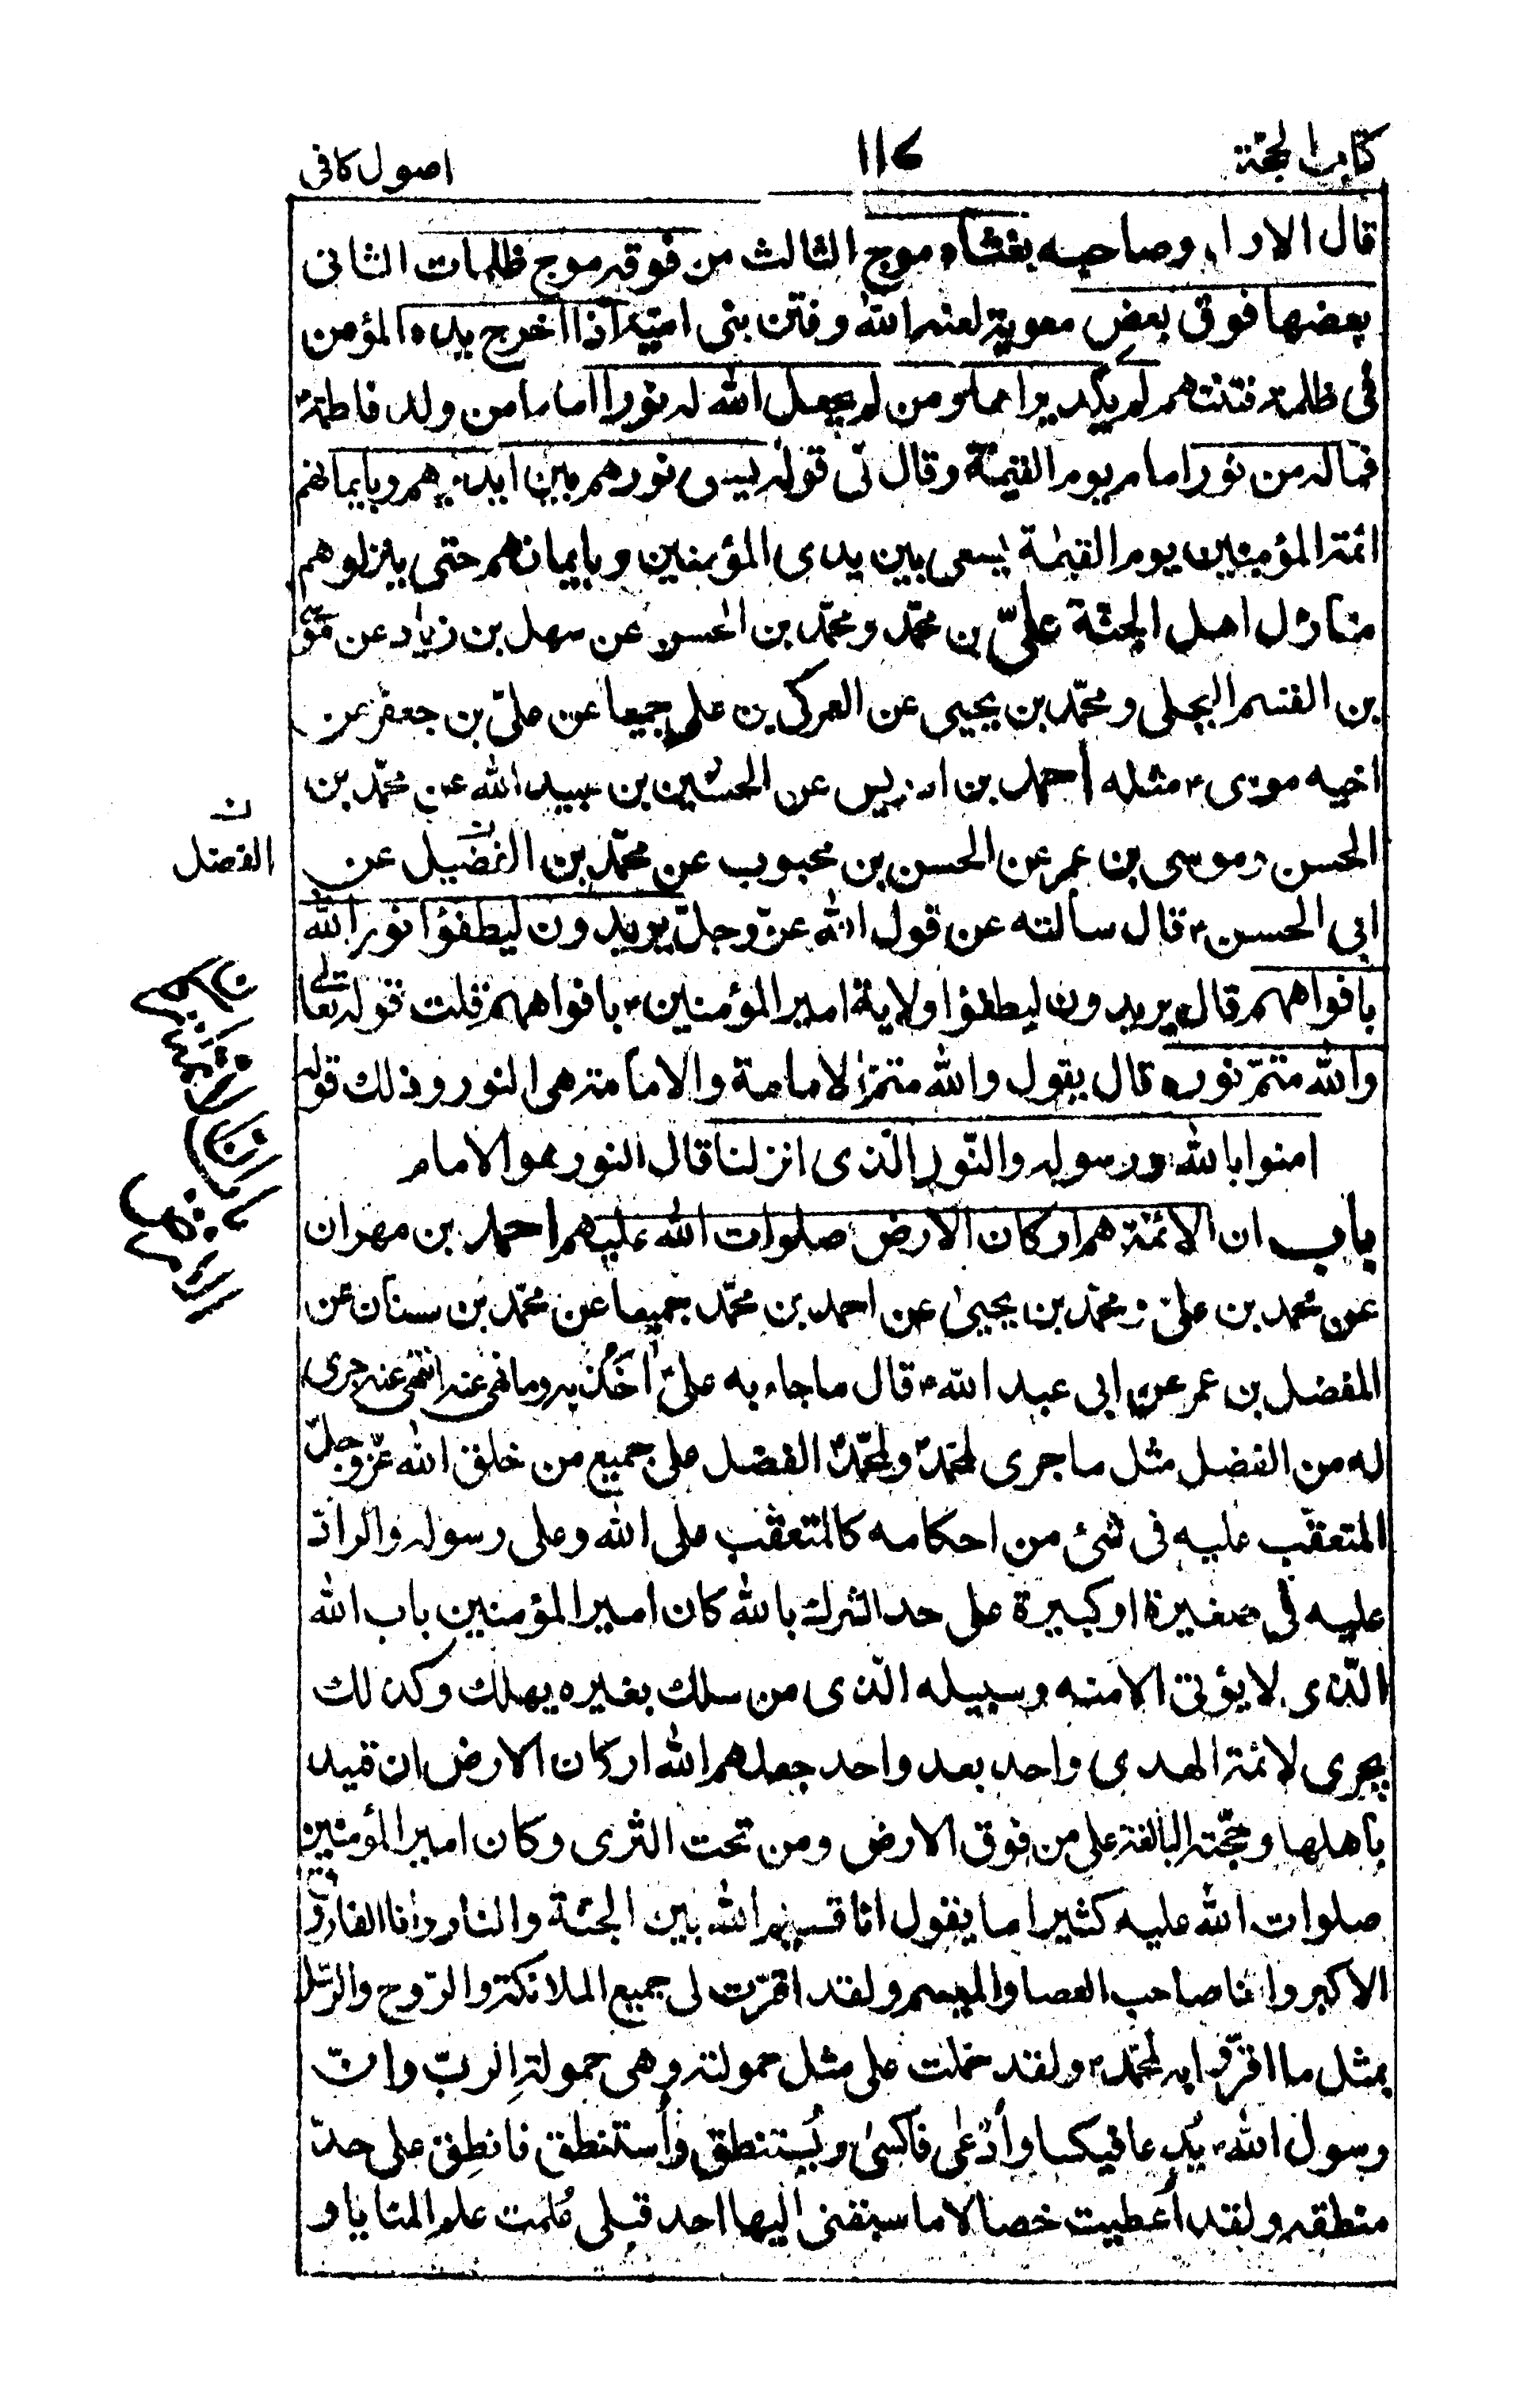 كتاب الحجة
١١٧
اصول كافى
قال الاول وصاحبه يغشاه موج الثالث من فوقه موج ظلمات الثانى
بعضها فوق بعض معوية لعنه الله وفتن بنى امية اذا اخرج يده المؤمن
فى ظلمة فتنتهم لم يكد يراها ومن لم يجعل الله له نورا اماما من ولد فاطمة
فماله من نور امام يوم القيمة وقال فى قوله يسعى نورهم بين ايديهم وبايمانهم
ائمة المؤمنين يوم القيمة يسعى بين يدى المؤمنين وبايمانهم حتى ينزلوهم
منازل اهل الجنة علىّ بن محمّد ومحمّد بن الحسن عن سهل بن زياد عن موسى
بن القسم البجلى ومحمّد بن يحيى عن العمركى بن على جميعا عن علىّ بن جعفر عن
اخيه موسى ع مثله احمد بن ادريس عن الحسين بن عبيد الله عن محمّد بن
الحسن وموسى بن عمر عن الحسن بن محبوب عن محمّد بن الفضيل عن
ابى الحسن ع قال سالته عن قول الله عزّ وجلّ يريدون ليطفؤا نور الله
بافواههم قال يريدون ليطفؤا ولاية امير المؤمنين ع بافواههم قلت قوله تعالى
والله متمّ نوره قال يقول والله متمّ الامامة والامامة هى النور وذلك قوله
امنوا بالله ورسوله والنّور الّذى انزلنا قال النور هو الامام
باب ان الائمّة هم اركان الارض صلوات الله عليهم احمد بن مهران
عن محمد بن علىّ ومحمّد بن يحيى عن احمد بن محمّد جميعا عن محمّد بن سنان عن
المفضل بن عمر عن ابى عبد الله ع قال ما جاء به علىّ اٰخذ به وما نهى عنه انتهى عنه جرى
له من الفضل مثل ما جرى لمحمّد ولمحمّد الفضل على جميع من خلق الله عزّ وجلّ
المتعقّب عليه فى شئ من احكامه كالمتعقّب على الله وعلى رسوله والرادّ
عليه فى صغيرة او كبيرة على حد الشرك بالله كان امير المؤمنين باب الله
الّذى لا يؤتى الا منه وسبيله الّذى من سلك بغيره يهلك وكذلك
يجرى لائمّة الهدى واحد بعد واحد جعلهم الله اركان الارض ان تميد
باهلها وحجّته البالغة على من فوق الارض ومن تحت الثرى وكان امير المؤمنين
صلوات الله عليه كثيرا ما يقول انا قسيم الله بين الجنّة والنار وانا الفاروق
الاكبر وانا صاحب العصا والميسم ولقد اقرّت لى جميع الملائكة والرّوح والرّسل
بمثل ما اقرّوا به لمحمّد ولقد حملت على مثل حمولته وهى حمولة الربّ وانّ
رسول الله ص يُدعا فيكسا واُدعٰى فاكسىٰ ويُستنطق واُستنطق فانطق على حدّ
منطقه ولقد اُعطيت خصالا ما سبقنى اليها احد قبلى عُلمت علم المنايا و
ن
الفضل